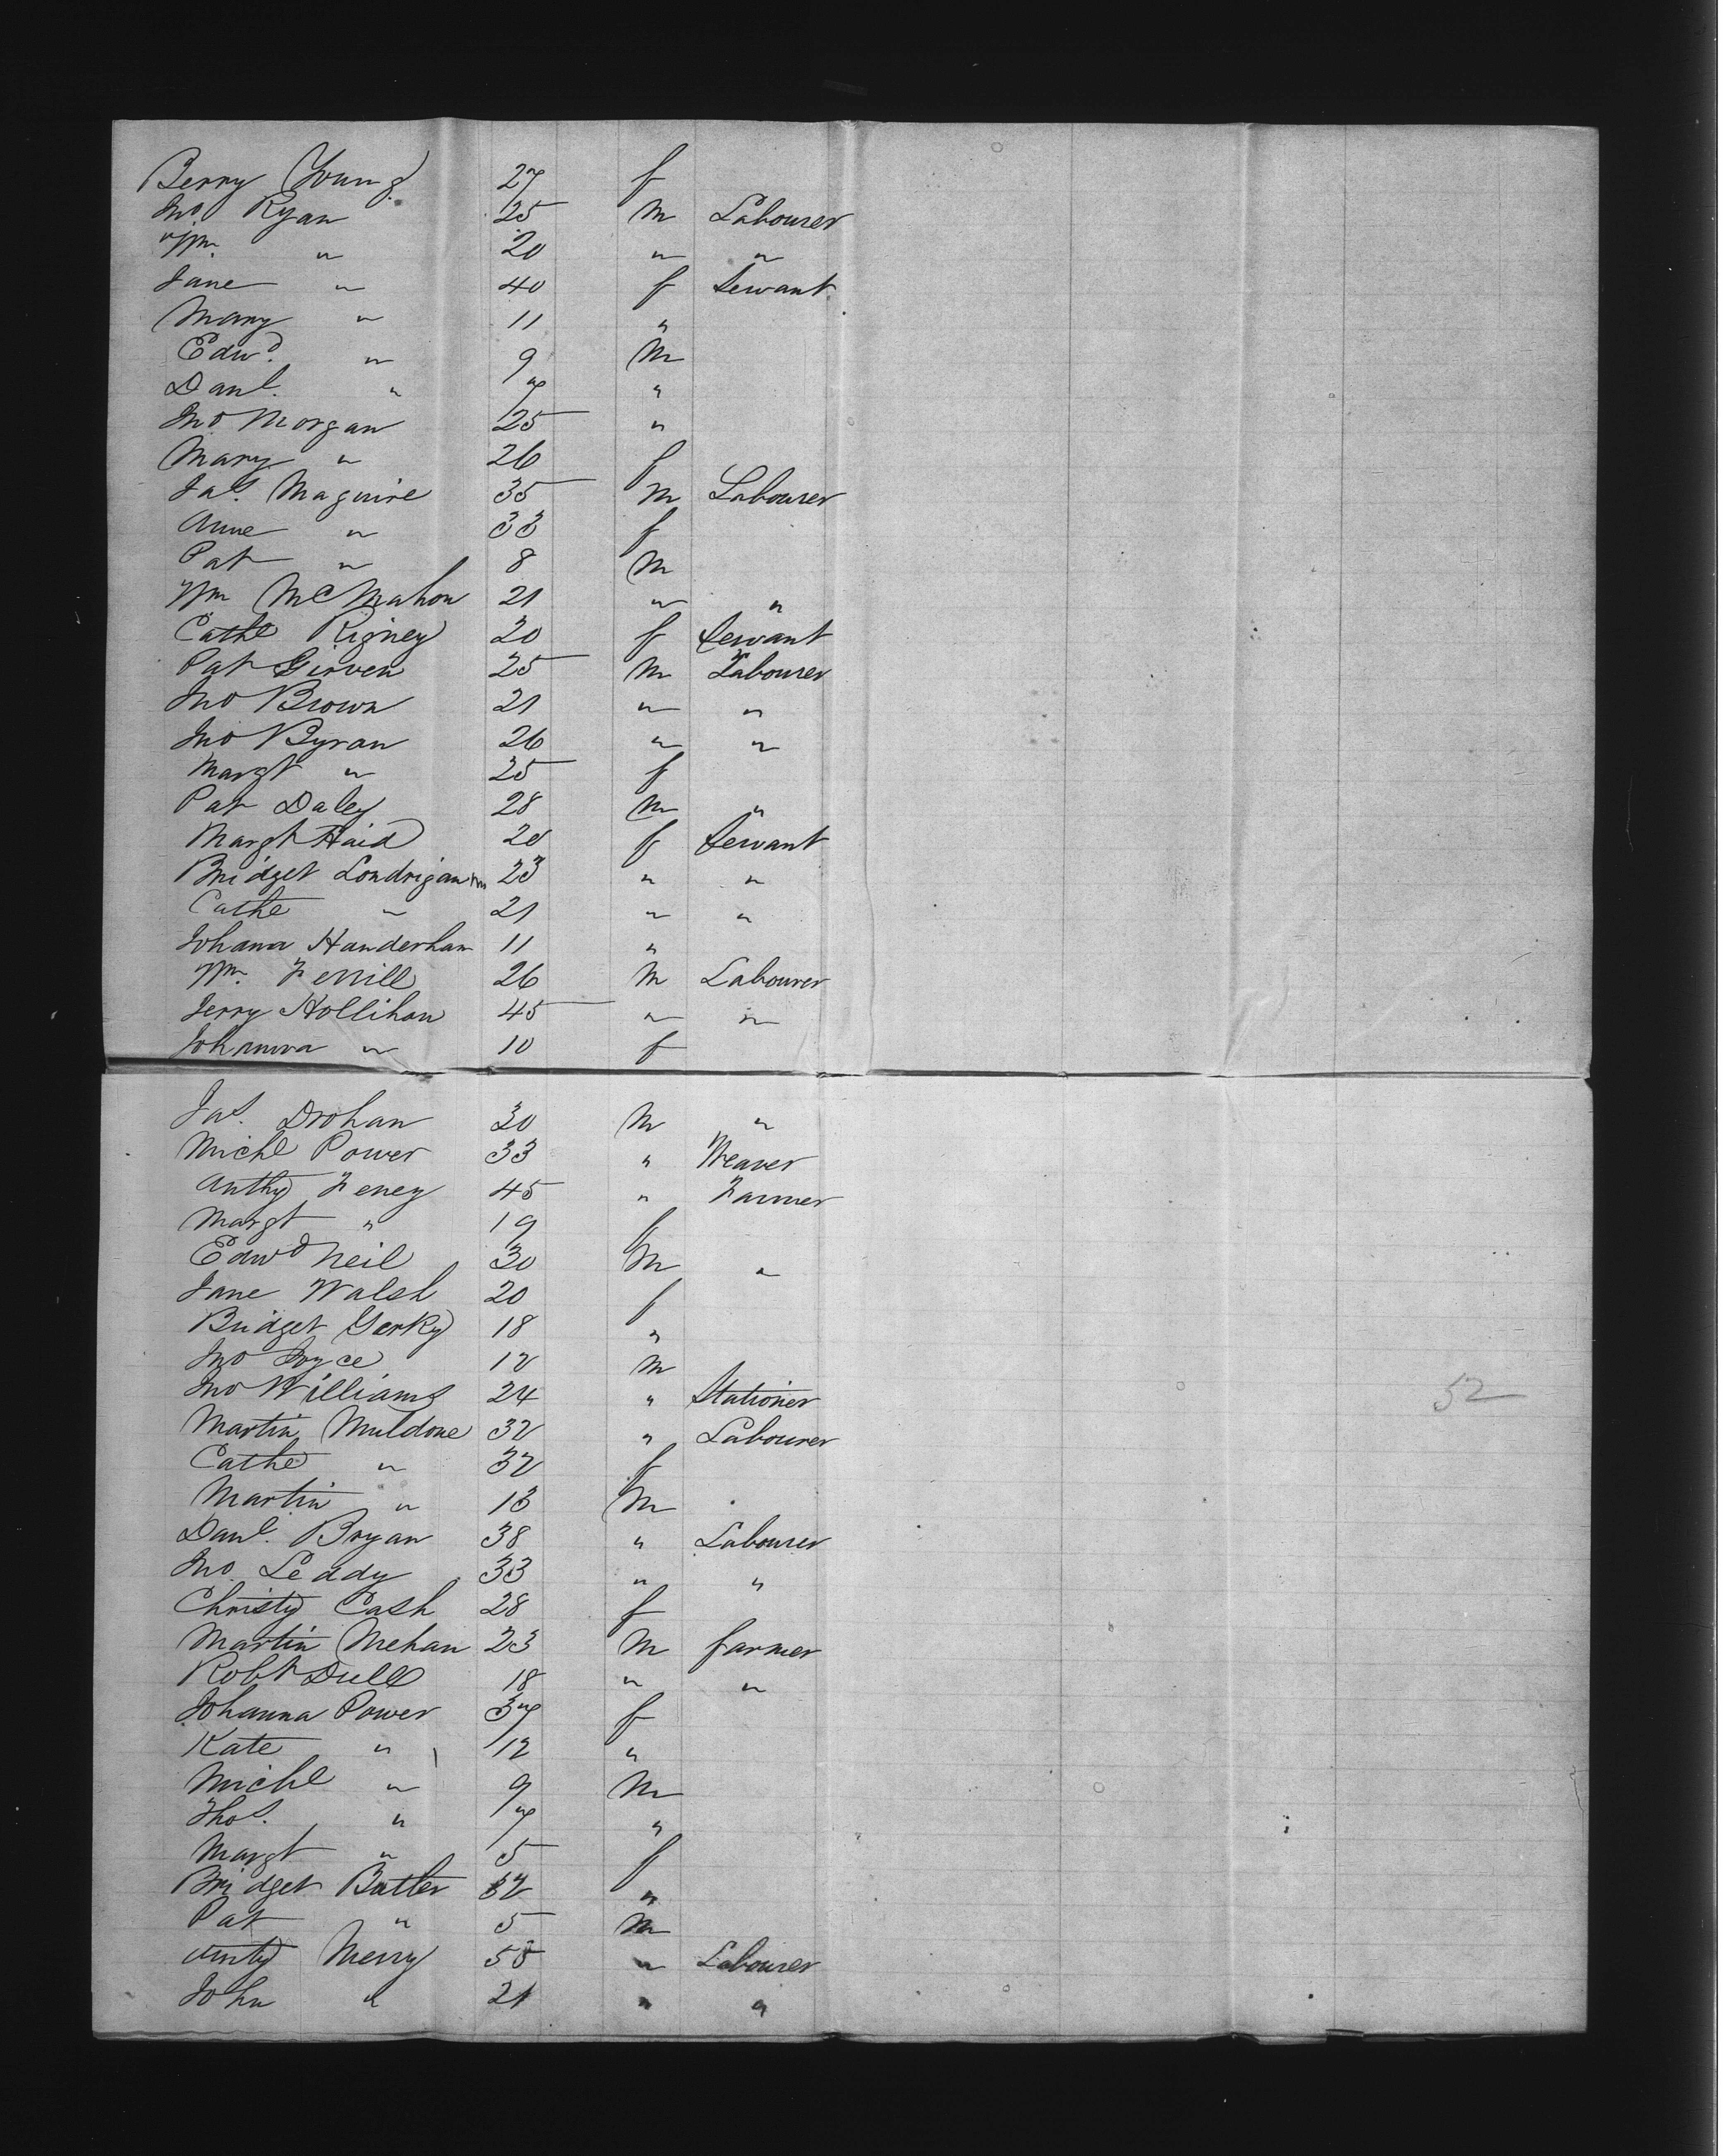 Berry Young 27 f
Jno Ryan 25 M Labourer
Wm. " 20 " "
Jane " 40 f Servant
Mary " 11 "
Edwd. " 9 M
Danl. " 7 "
Jno Morgan 25 "
Mary " 26 f
Jas. Maguire 35 M Labourer
Anne " 33 f
Pat " 8 M
Wm McMahon 21 " "
Cathe Rigney 20 f Servant
Pat Girven 25 M Labourer
Jno Brown 21 " "
Jno Byran 26 " "
Margt " 25 f
Pat Daley 28 M "
Margt Haid 20 f Servant
Bridget Londrigan 23 " "
Cathe " 21 " "
Johana Handerhan 11 "
Wm. Ferrill 26 M Labourer
Jerry Hollihan 45 " "
Johanna " 10 f
Jas. Drohan 30 M "
Michl Power 33 " Weaver
Anthy Feney 45 " Farmer
Margt " 19 f
Edwd Neil 30 M "
Jane Walsh 20 f
Bridget Gerky 18 "
Jno Joyce 12 M
Jno Williams 24 " Stationer
52
Martin Muldone 32 " Labourer
Cathe " 32 f
Martin " 13 M
Danl. Bryan 38 " Labourer
Jno. Leddy 33 " "
Christy Cash 28 f
Martin Mehan 23 M farmer
Robt Dull 18 " "
Johanna Power 37 f
Kate " 12 "
Michl " 9 M
Thos. " 7 "
Margt " 5 f
Bridget Butler 32 "
Pat " 5 M
Anty Merry 50 " Labourer
John " 21 " "